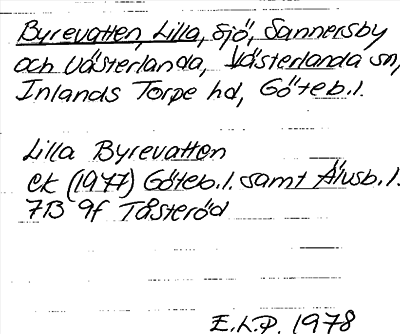 Byrevatten, Lilla, sjö, Sannersby
och Västerlanda, Västerlanda sn,
Inlands Torpe hd, Göteb.l.
Lilla Byrevatten
ek (1977) Göteb.l. samt Älvsb.l.
7B 9f Tåsteröd
E.L.P. 1978